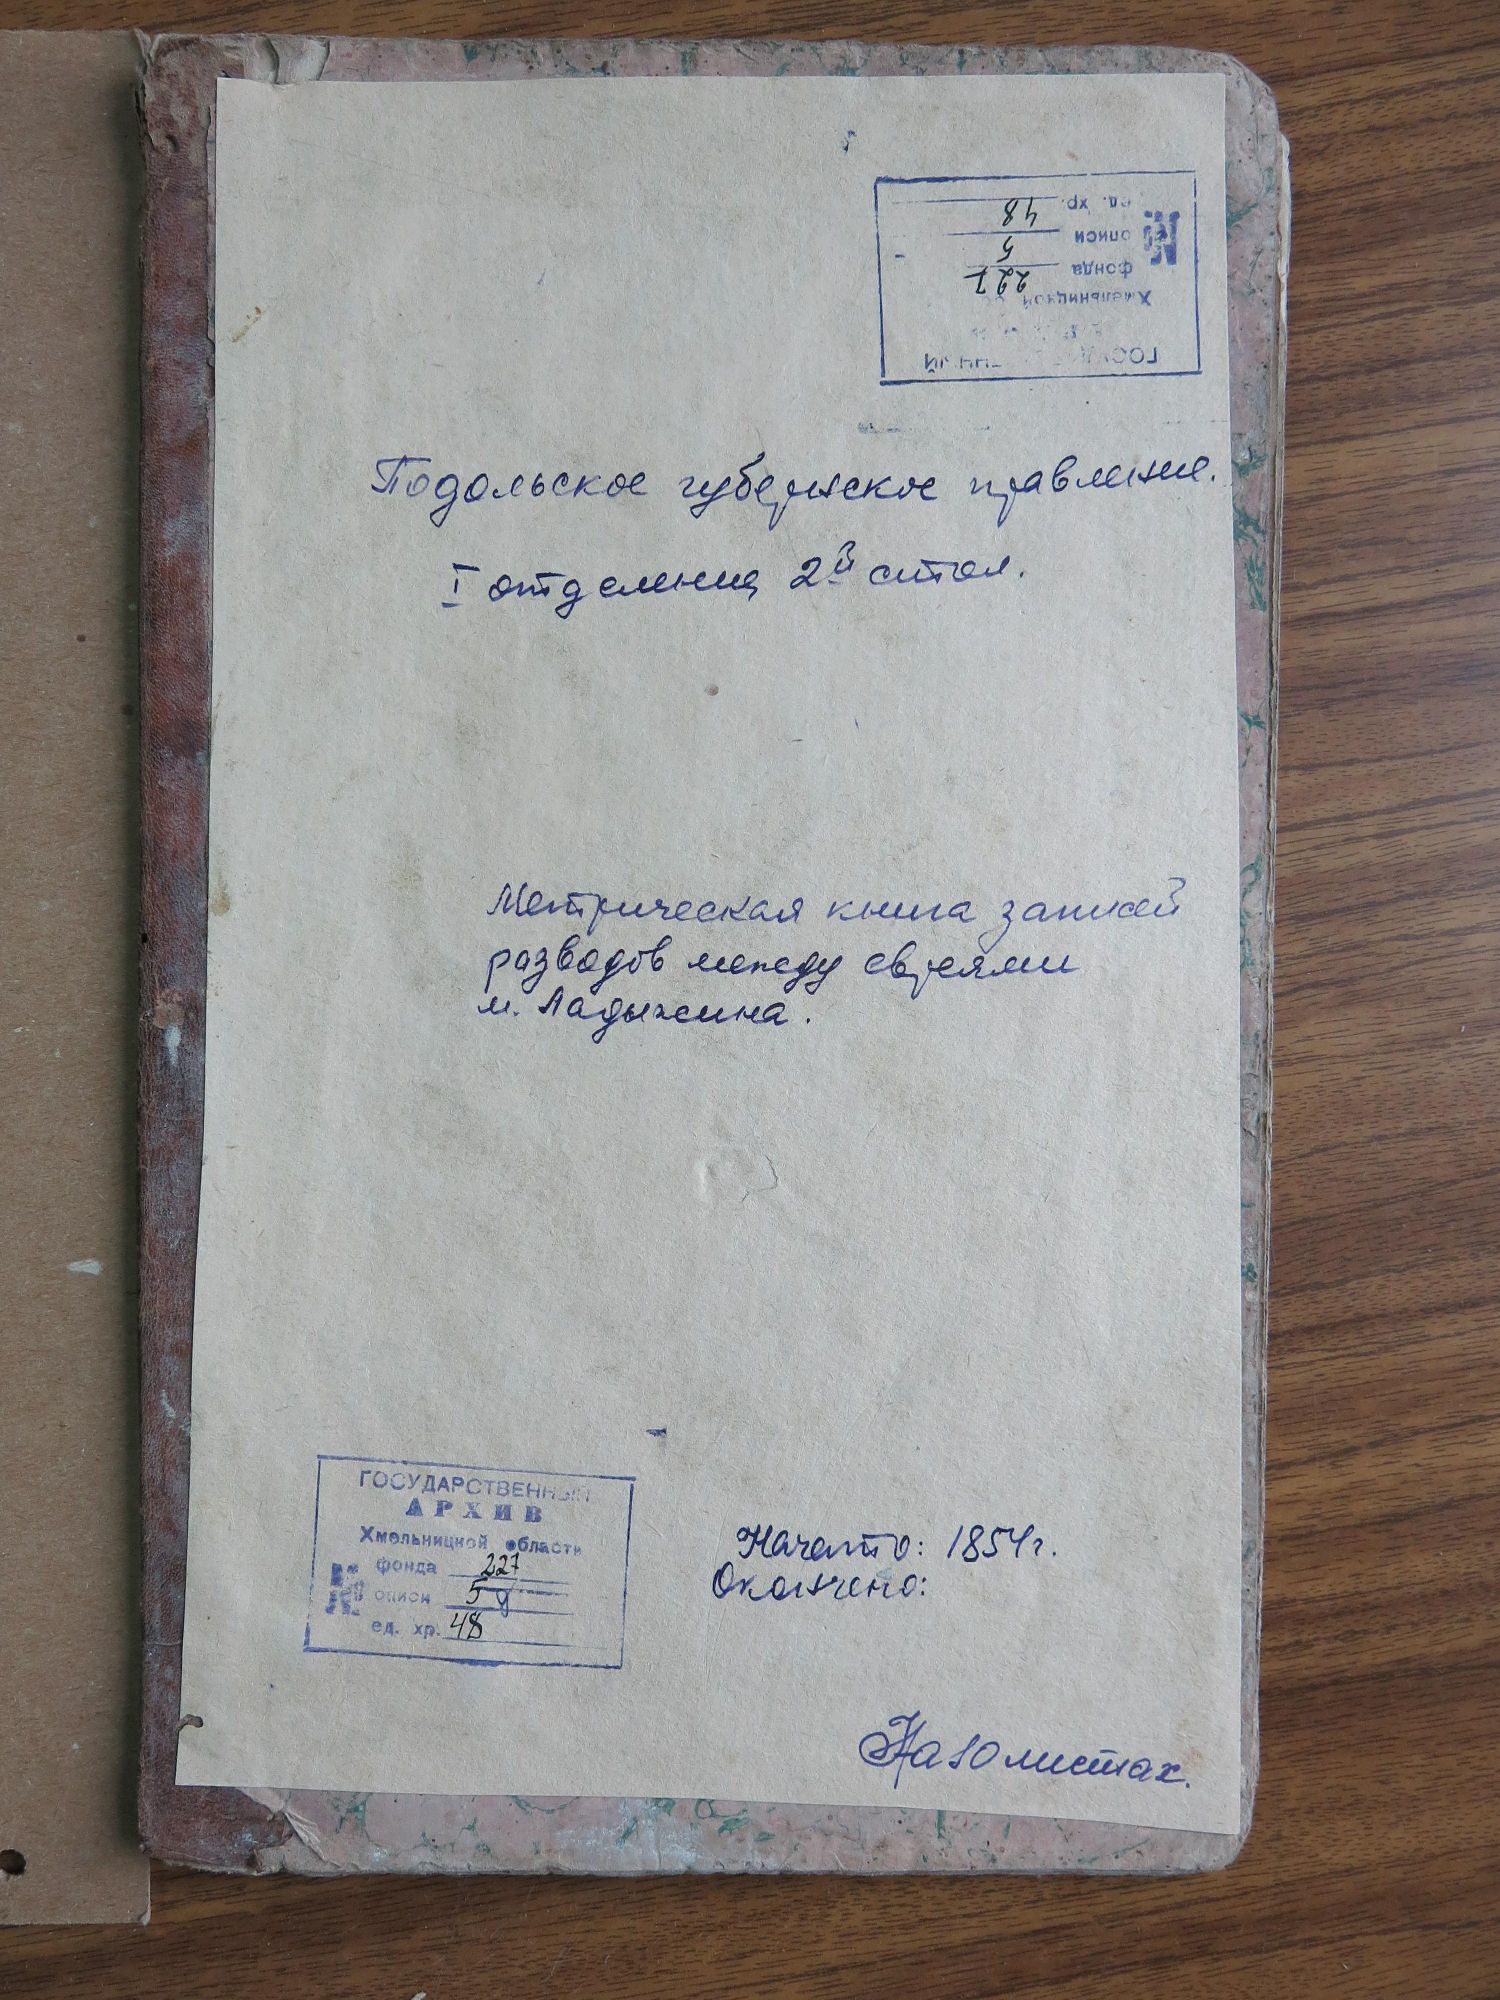 ед. хр. 48
описи 5
фонда 227
Хмельницкой
Подольское губернское правление.
I отделение, 2й стол.
Метрическая книга записей
разводов между евреями
м. Ладыжина.
ГОСУДАРСТВЕННЫЙ
АРХИВ
Хмельницкой области
фонда 227
№ описи 5
ед. хр. 48
Начато: 1854 г.
Окончено:
На 10 листах.